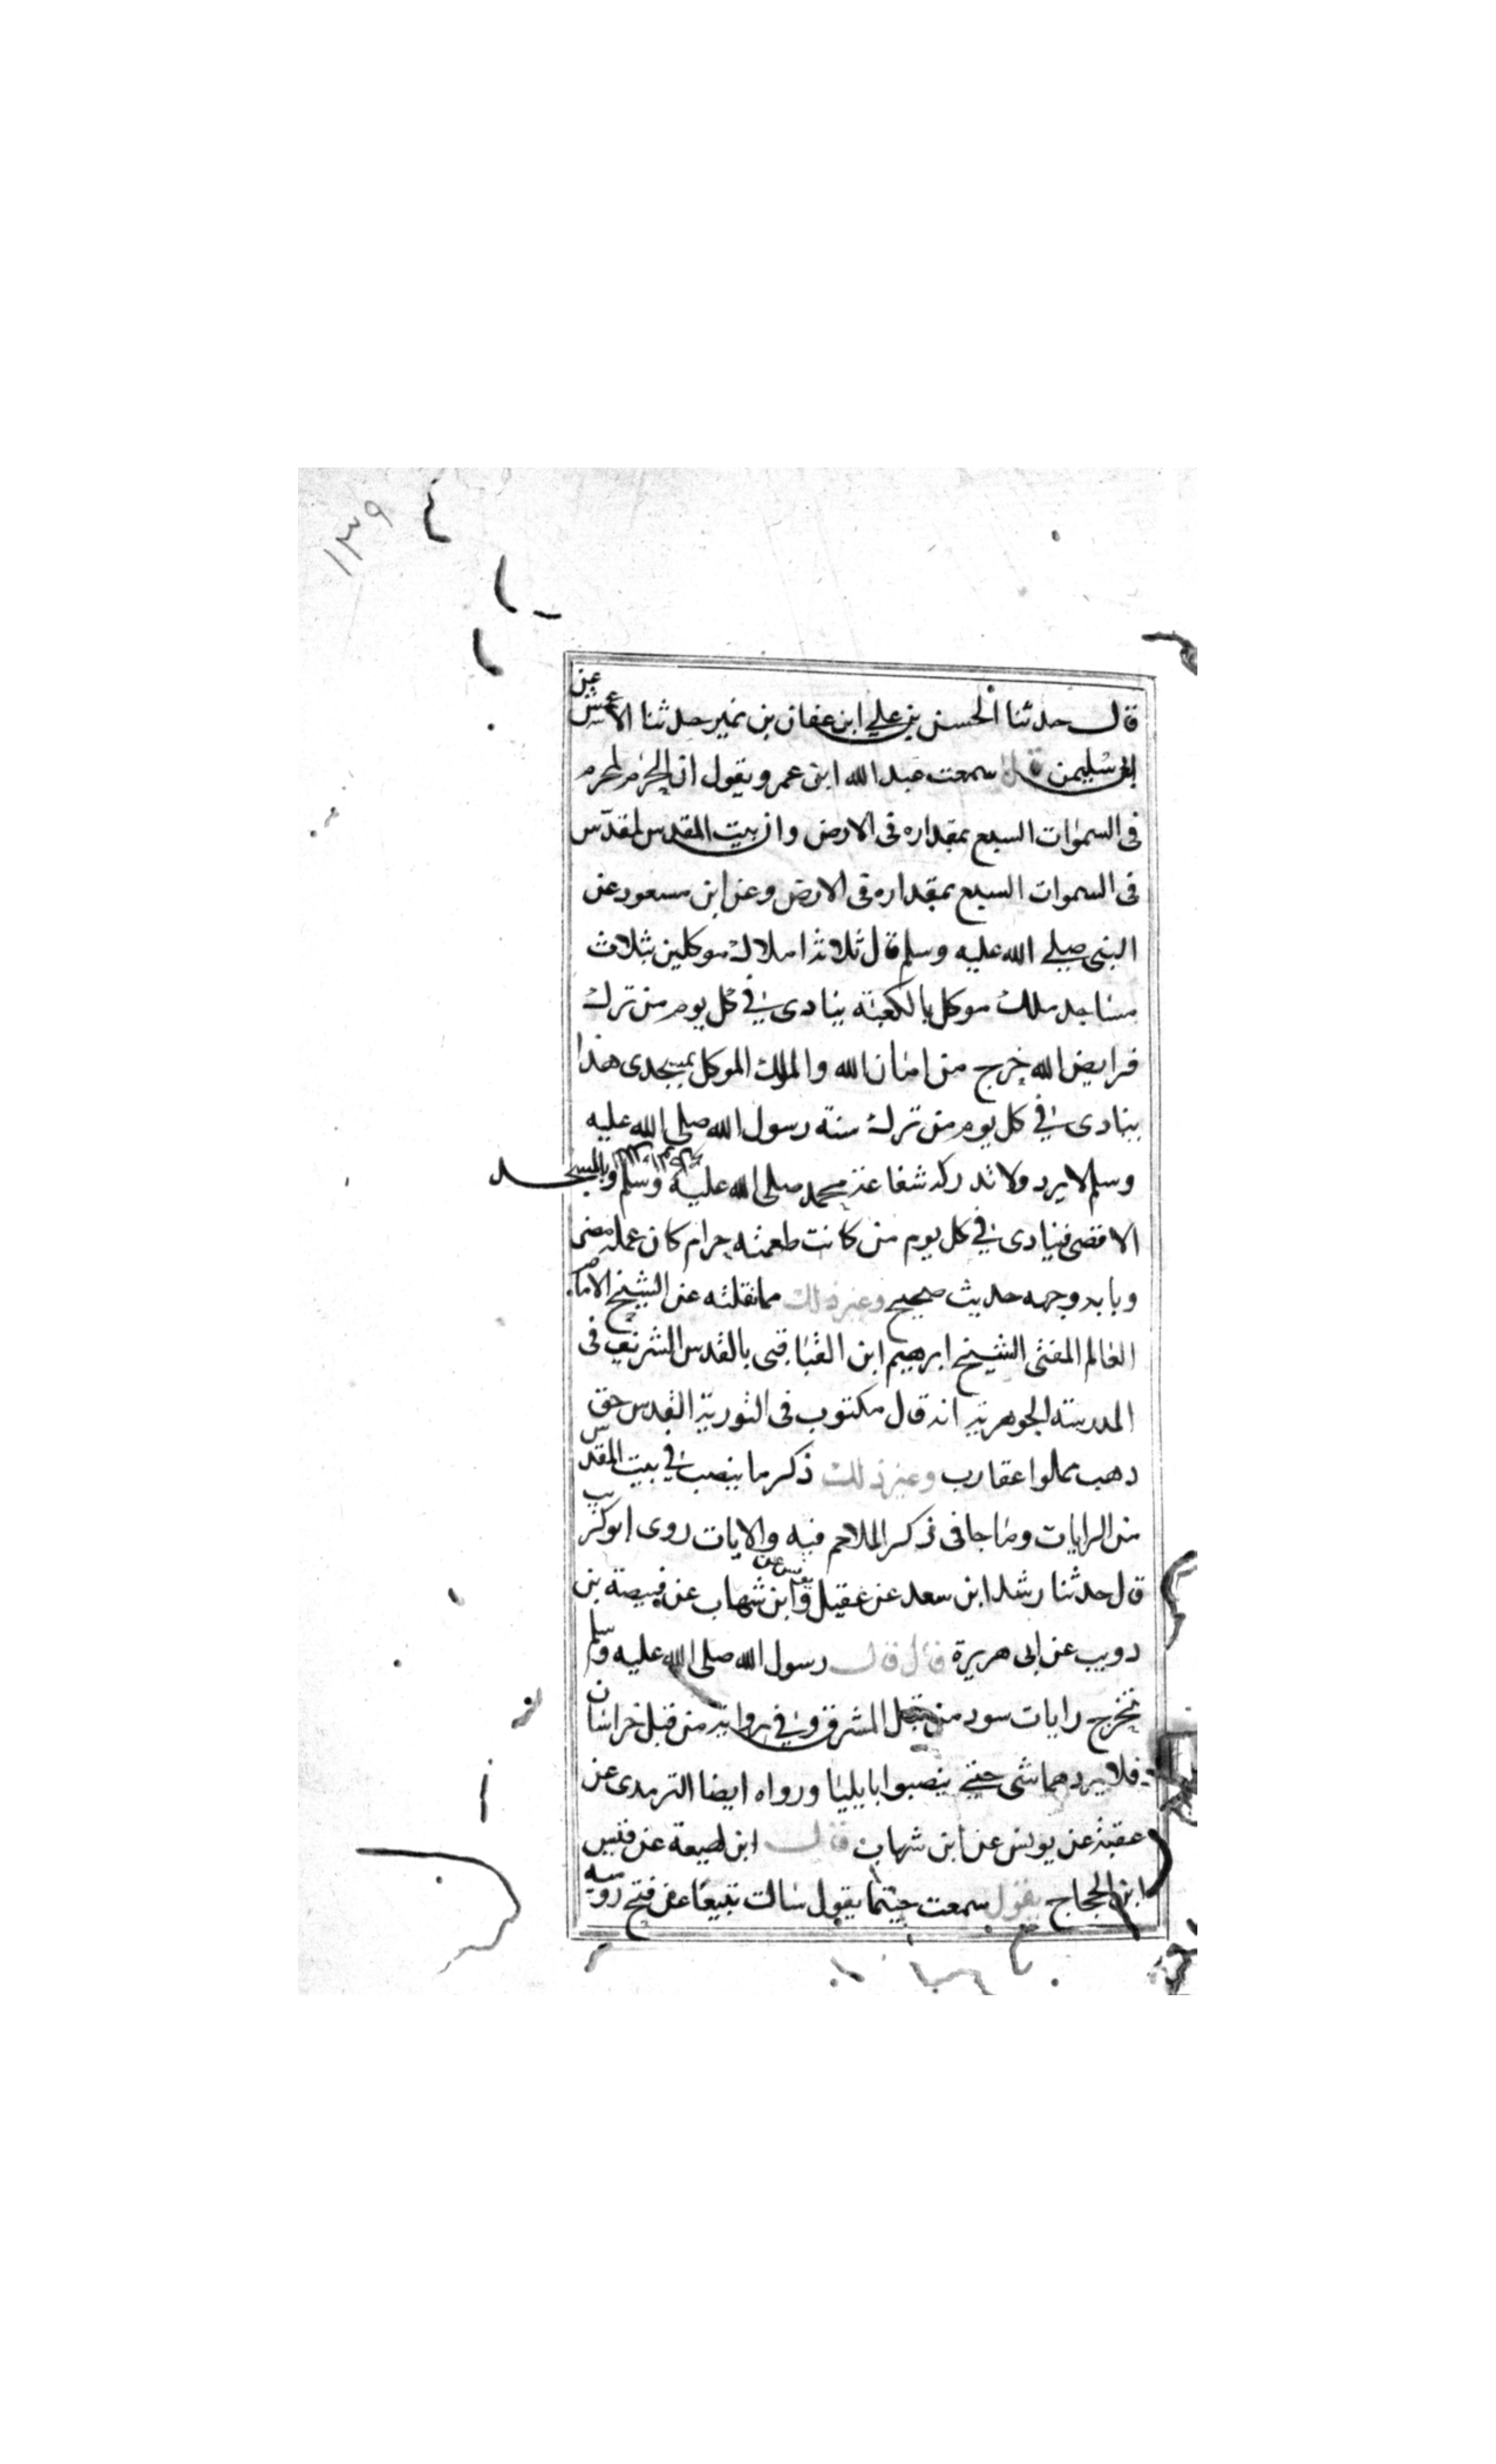 ١٣٩
قال حدثنا الحسن بن علي ابن عفان بن نمير حدثنا الاعمش عن
ابى سليمن قال سمعت عبد الله ابن عمرو يقول ان الحرم لمحرم
فى السموات السبع بمقداره فى الارض وان بيت المقدس لمقدّس
فى السموات السبع بمقداره فى الارض وعن ابن مسعود عن
النبى صلى الله عليه وسلم قال ثلاثة املاك موكلين بثلاث
مساجد ملك موكل بالكعبة ينادى في كل يوم من ترك
فرايض الله خرج من امان الله والملك الموكل بمسجدى هذا
ينادى في كل يوم من ترك سنة رسول الله صلى الله عليه
وسلم لا يرد ولا تدركه شفاعة محمد صلى الله عليه وسلم وبالمسجد
الاقصى فينادى في كل يوم من كانت طعمته حرام كان عمله
وجهه حديث صحيح وغير ذلك مما نقلته عن الشيخ الامام
العالم المفتى الشيخ ابرهيم ابن القباقبى بالقدس الشريف فى
المدرسة الجوهرية انه قال مكتوب فى التورية القدس حق
دهب مملوا عقارب وغير ذلك ذكر ما ينصب في بيت المقدس
من الرايات وما جا فى ذكر الملاحم فيه والايات روى
قال حدثنا رشد ابن سعد عن عقيل وابن شهاب عن قبيصة بن
دويب عن ابى هريرة قال قال رسول الله صلى الله عليه وسلم
تخرج رايات سود من قبل المشرق وفي رواية من قبل خراسان
فلا يردها شى حتى ينصبوا بايليا ورواه ايضا الترمدى عن
عن يونس عن ابن شهاب قال ابن لهيعة عن قيس
ابن الحجاج يقول سمعت يقول سالت تبيعا عن فتح رومية